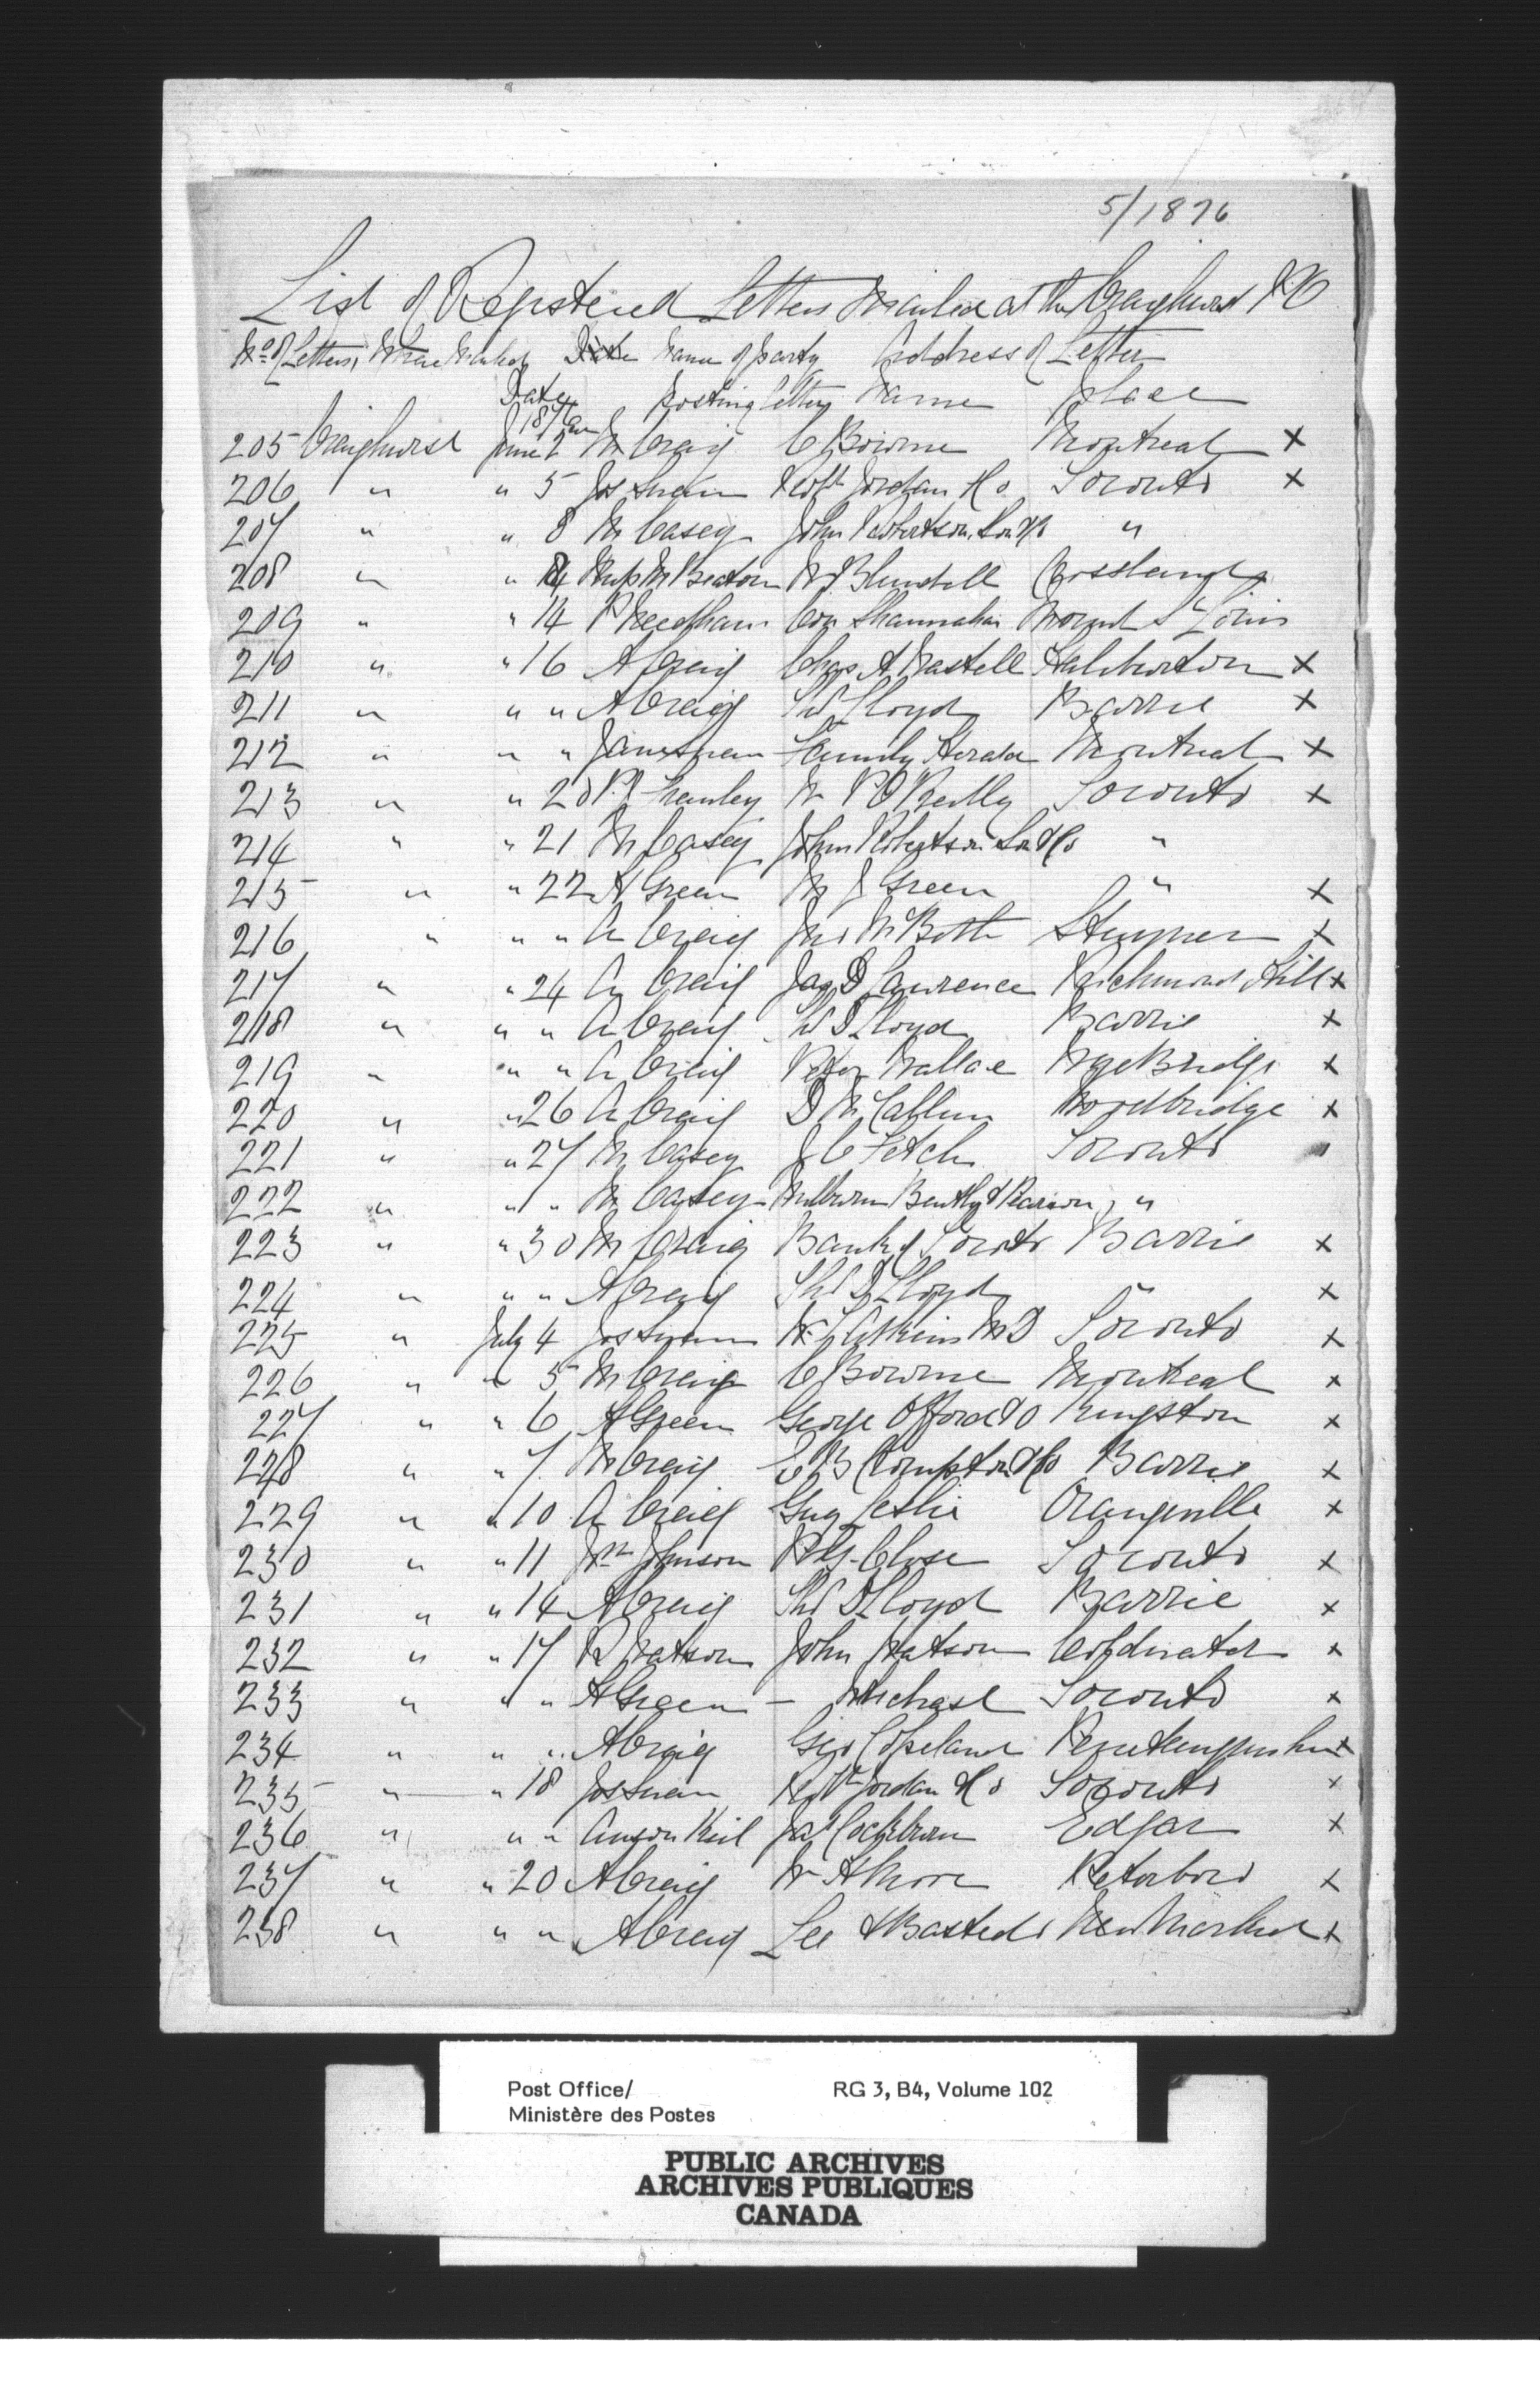 5/1876
List of Registered Letters Mailed at the Craighurst P.O
No of Letters, Where Mailed Date Name of party Address of Letter
Date posting letters Name place
1876
205 Craighurst June 2 M Craig C Bourne Montreal x
206 " " 5 Jos Swain Robt Jordan & Co Toronto x
207 " " 8 M Casey John Robertson, Son & Co "
208 " " 14 Miss M Beaton W J Blundell Crossland
209 " " 14 P Needham Con Shannahan Mount St Louis
210 " " 16 A Craig Chas A Wastell Haliburton x
211 " " " A Craig Lloyd Barrie x
212 " " " Swain Family Herald Montreal x
213 " " 20 P. Frawley W P O Reilly Toronto x
214 " " 21 M Casey John Robertson Son & Co "
215 " " 22 A Green M J Green " x
216 " " " A Craig Jno Stayner x
217 " " 24 A Craig Jas D Lawrence Richmond Hill x
218 " " " A Craig D Lloyd Barrie x
219 " " " A Craig Peter Wallace Wyebridge x
220 " " 26 A Craig D McCallum Woodbridge x
221 " " 27 M Casey J C Fitch Toronto
222 " " " M Casey Milburn Bently & Pearson, "
223 " " 30 M Craig Bank of Toronto Barrie x
224 " " " A Craig D Lloyd " x
225 " July 4 Jos Swain W T Atkins MD Toronto x
226 " " 5 M Craig C Bourne Montreal x
227 " " 6 A Green George Offord & Co Kingston x
228 " " 7 M Craig E B Crompton & Co Barrie x
229 " " 10 A Craig Guy Leslie Orangeville x
230 " " 11 Wm Johnson P G Close Toronto x
231 " " 14 A Craig D Lloyd Barrie x
232 " " 17 R Watson John Watson Coldwater x
233 " " " A Green - Michael Toronto x
234 " " " A Craig Geo Copeland Penetanguishene x
235 " " 18 Jos Swain Robt Jordan & Co Toronto x
236 " " " Anson Jas Cockburn Edgar x
237 " " 20 A Craig W A Peterboro x
238 " " " A Craig Lee & Bastedo New Market x
Post Office/ RG 3, B4, Volume 102
Ministère des Postes
PUBLIC ARCHIVES
ARCHIVES PUBLIQUES
CANADA